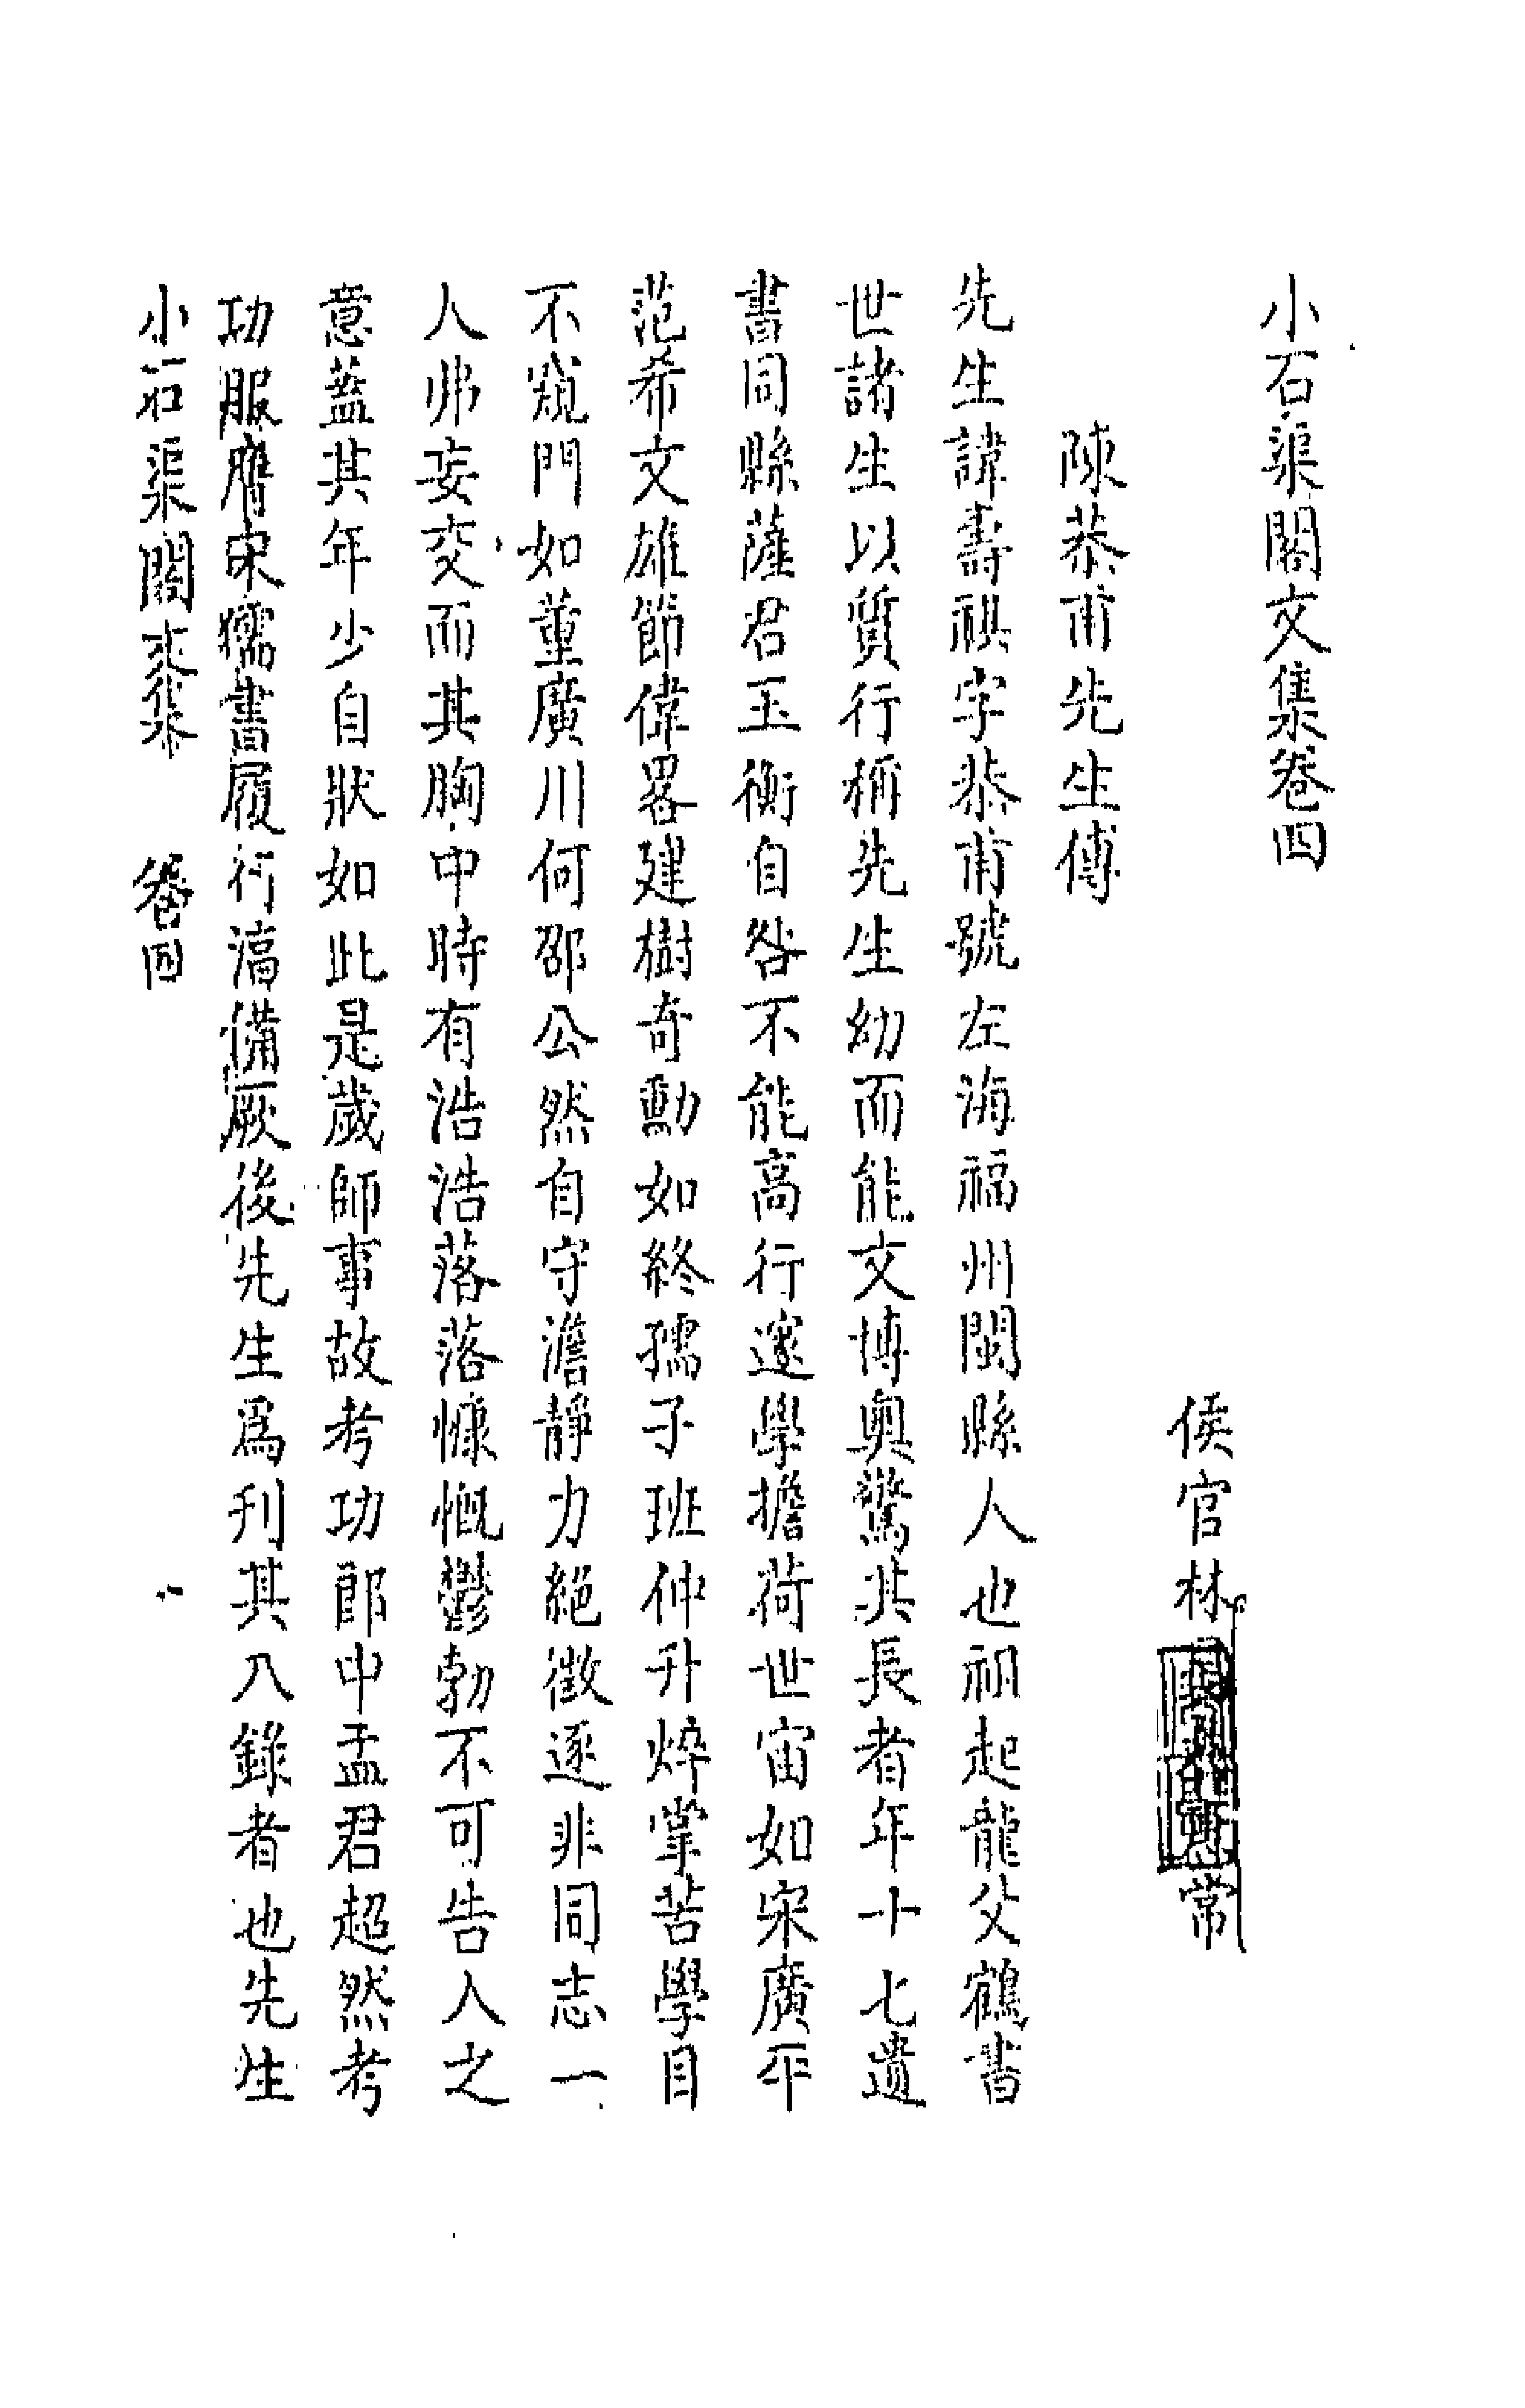 小石渠閣文集卷四
侯官林
常
陳恭甫先生傳
先生諱壽祺字恭甫號左海福州閩縣人也祖起龍父鶴書
世諸生以質行稱先生幼而能文博奧驚其長者年十七遺
書同縣薩君玉衡自咎不能高行邃學擔荷世宙如宋廣平
范希文雄節偉畧建樹奇勳如終孺子班仲升焠掌苦學目
不窺門如董廣川何邵公然自守澹靜力絕徵逐非同志一
人弗妄交而其胸中時有浩浩落落慷慨鬱勃不可告人之
意蓋其年少自狀如此是歲師事故考功郎中孟君超然考
功服膺宋儒書履行滀備厥後先生爲刊其八錄者也先生
小石渠閣文集 卷四 一